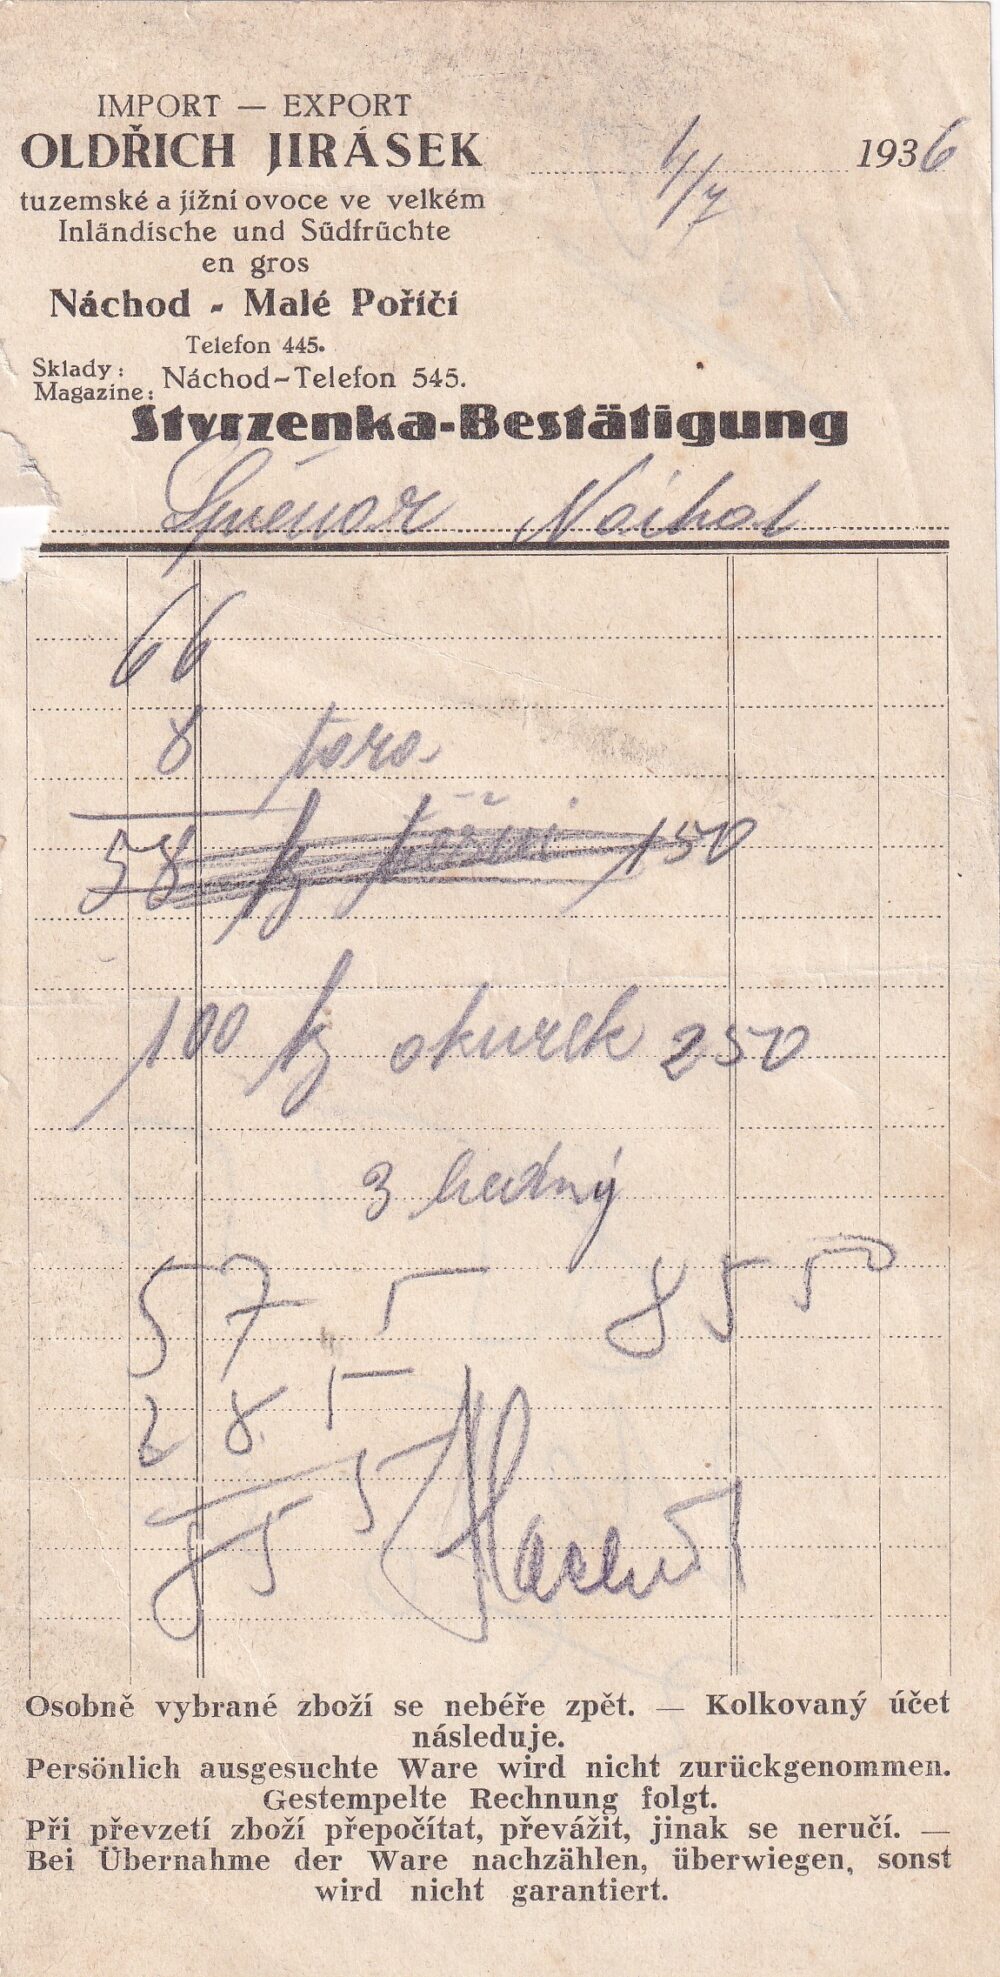 IMPORT — EXPORT
OLDŘICH JIRÁSEK
tuzemské a jižní ovoce ve velkém
Inländische und Südfrüchte
en gros
Náchod - Malé Poříčí
Telefon 445.
Sklady:
Magazine: Náchod-Telefon 545.
4/7 1936
Stvrzenka-Bestätigung
Náchod
66
8 tara
58 kg 150
100 kg okurek 250
3 bedny
57 5 85 50
28. 5
85 5
Osobně vybrané zboží se nebéře zpět. — Kolkovaný účet
následuje.
Persönlich ausgesuchte Ware wird nicht zurückgenommen.
Gestempelte Rechnung folgt.
Při převzetí zboží přepočítat, převážit, jinak se neručí. —
Bei Übernahme der Ware nachzählen, überwiegen, sonst
wird nicht garantiert.